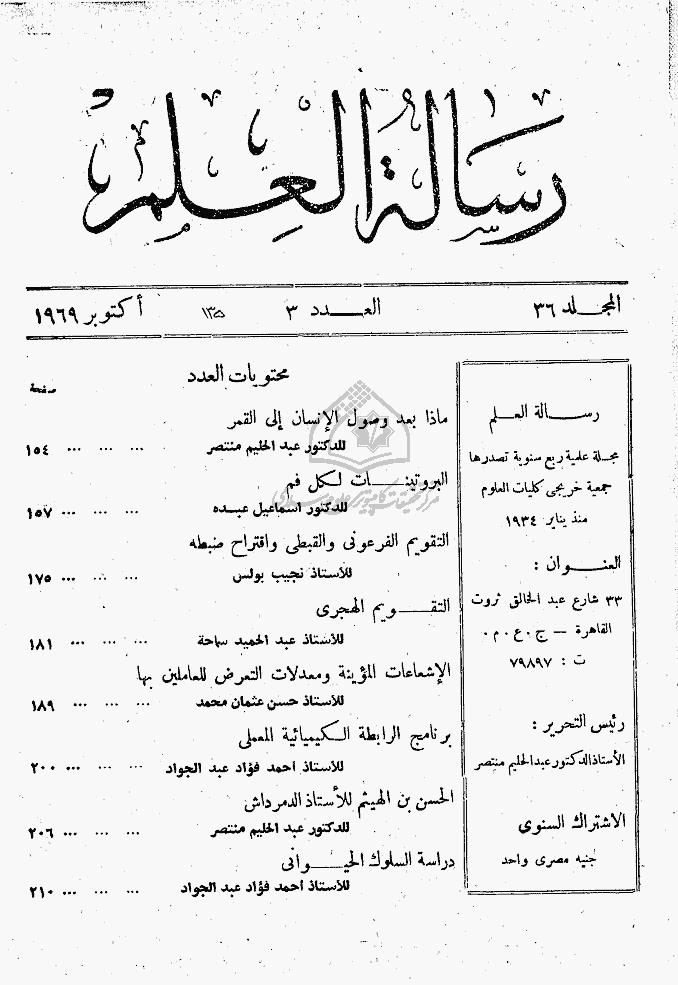 رسالة العلم
المجلد ٣٦ العدد ٣ ١٣٥ أكتوبر ١٩٦٩
رسالة العلم
مجلة علمية ربع سنوية تصدرها
جمعية خريجى كليات العلوم
منذ يناير ١٩٣٤
العنوان :
٣٣ شارع عبد الخالق ثروت
القاهرة — ج٠ع٠م٠
ت : ٧٩٨٩٧
رئيس التحرير :
الأستاذ الدكتور عبد الحليم منتصر
الاشتراك السنوى
جنيه مصرى واحد
محتويات العدد
صفحة
ماذا بعد وصول الإنسان إلى القمر
للدكتور عبد الحليم منتصر ... ... ... ١٥٤
البروتينات لكل فم
للدكتور اسماعيل عبده ... ... ... ١٥٧
التقويم الفرعونى والقبطى واقتراح ضبطه
للأستاذ نجيب بولس ... ... ... ١٧٥
التقويم الهجرى
للأستاذ عبد الحميد سماحة ... ... ... ١٨١
الإشعاعات المؤينة ومعدلات التعرض للعاملين بها
للأستاذ حسن عثمان محمد ... ... ... ١٨٩
برنامج الرابطة الكيميائية المعملى
للأستاذ احمد فؤاد عبد الجواد ... ... ... ٢٠٠
الحسن بن الهيثم للأستاذ الدمرداش
للدكتور عبد الحليم منتصر ... ... ... ٢٠٦
دراسة السلوك الحيوانى
للأستاذ أحمد فؤاد عبد الجواد ... ... ... ٢١٠